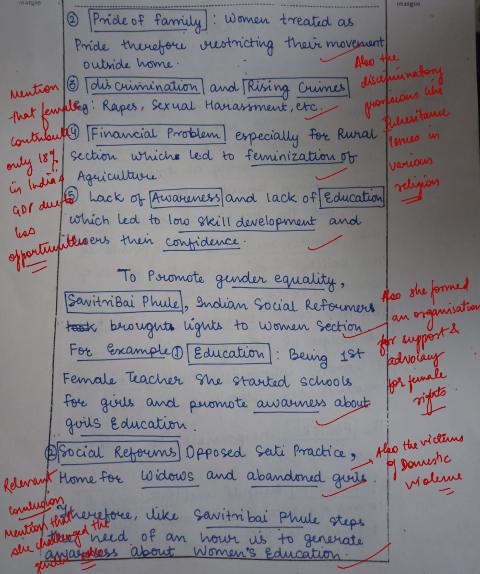 margin
margin
② Pride of family : Women treated as
Pride therefore restricting their movement
outside home.
③ discrimination and Rising Crimes
eg: Rapes, Sexual Harassment, etc.
④ Financial Problem especially for Rural
Section which led to feminization of
Agriculture.
⑤ Lack of Awareness and lack of Education
which led to low skill development and
lowers their confidence.
Mention
that females
contribute
only 18%
in India's
GDP due to
less
opportunities
Also the
discriminatory
provisions like
Inheritance
issues in
various
religion
To Promote gender equality,
Savitribai Phule, Indian Social Reformers
brought lights to women Section
For Example ① Education : Being 1st
Female Teacher She started schools
for girls and promote awarness about
girls Education.
② Social Reforms Opposed Sati Practice,
Home for Widows and abandoned girls.
Also she formed
an organisation
for support &
advocacy
for female
rights
Also the victims
of Domestic
violence
Relevant
conclusion
Mention that
she challenged the
gender
Therefore, like Savitribai Phule steps
need of an hour is to generate
awareness about Women's Education.